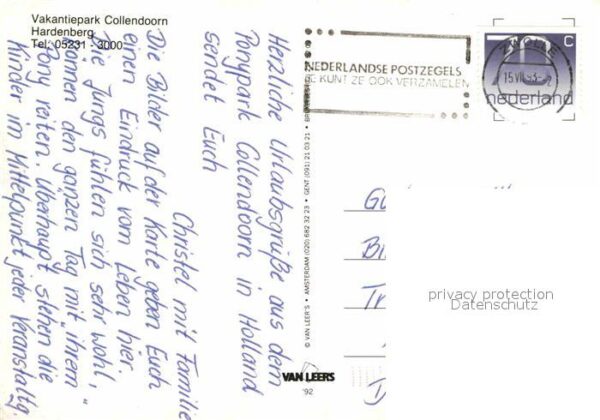 Vakantiepark Collendoorn
Hardenberg
Tel: 05231 - 3000
Herzliche Urlaubsgrüße aus dem
Ponypark Collendoorn in Holland
sendet Euch
Christel mit Familie
Die Bilder auf der Karte geben Euch
einen Eindruck vom Leben hier.
Die Jungs fühlen sich sehr wohl,
können den ganzen Tag mit „ihrem"
Pony reiten. Überhaupt stehen die
Kinder im Mittelpunkt jeder Veranstaltg
NEDERLANDSE POSTZEGELS
JE KUNT ZE OOK VERZAMELEN
ZWOLLE
15.VII.93
70 c
nederland
© VAN LEER'S • AMSTERDAM (020) 682 32 23 • GENT (091) 21 03 21 •
VAN LEERS
'92
privacy protection
Datenschutz